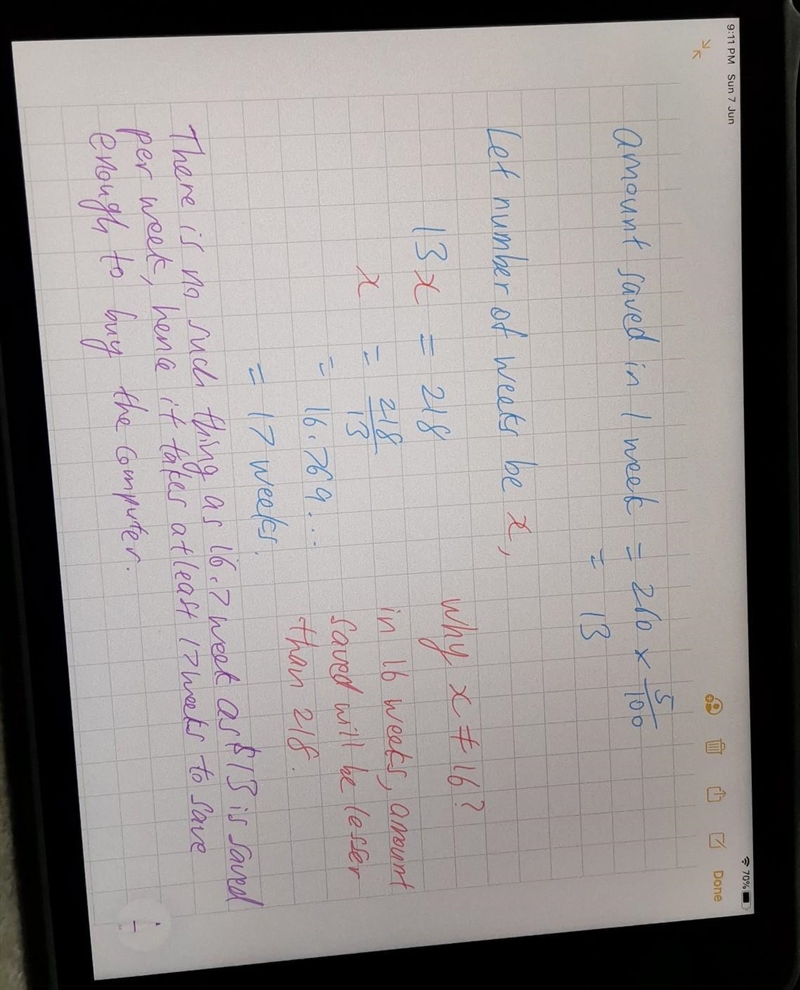 9:11 PM Sun 7 Jun
70%
Done
amount saved in 1 week = 260 × 5/100
= 13
Let number of weeks be x,
13x = 218
x = 218/13
= 16.769...
= 17 weeks.
why x ≠ 16?
in 16 weeks, amount
saved will be lesser
than 218.
There is no such thing as 16.7 week as $13 is saved
per week, hence it takes atleast 17 weeks to save
enough to buy the computer.